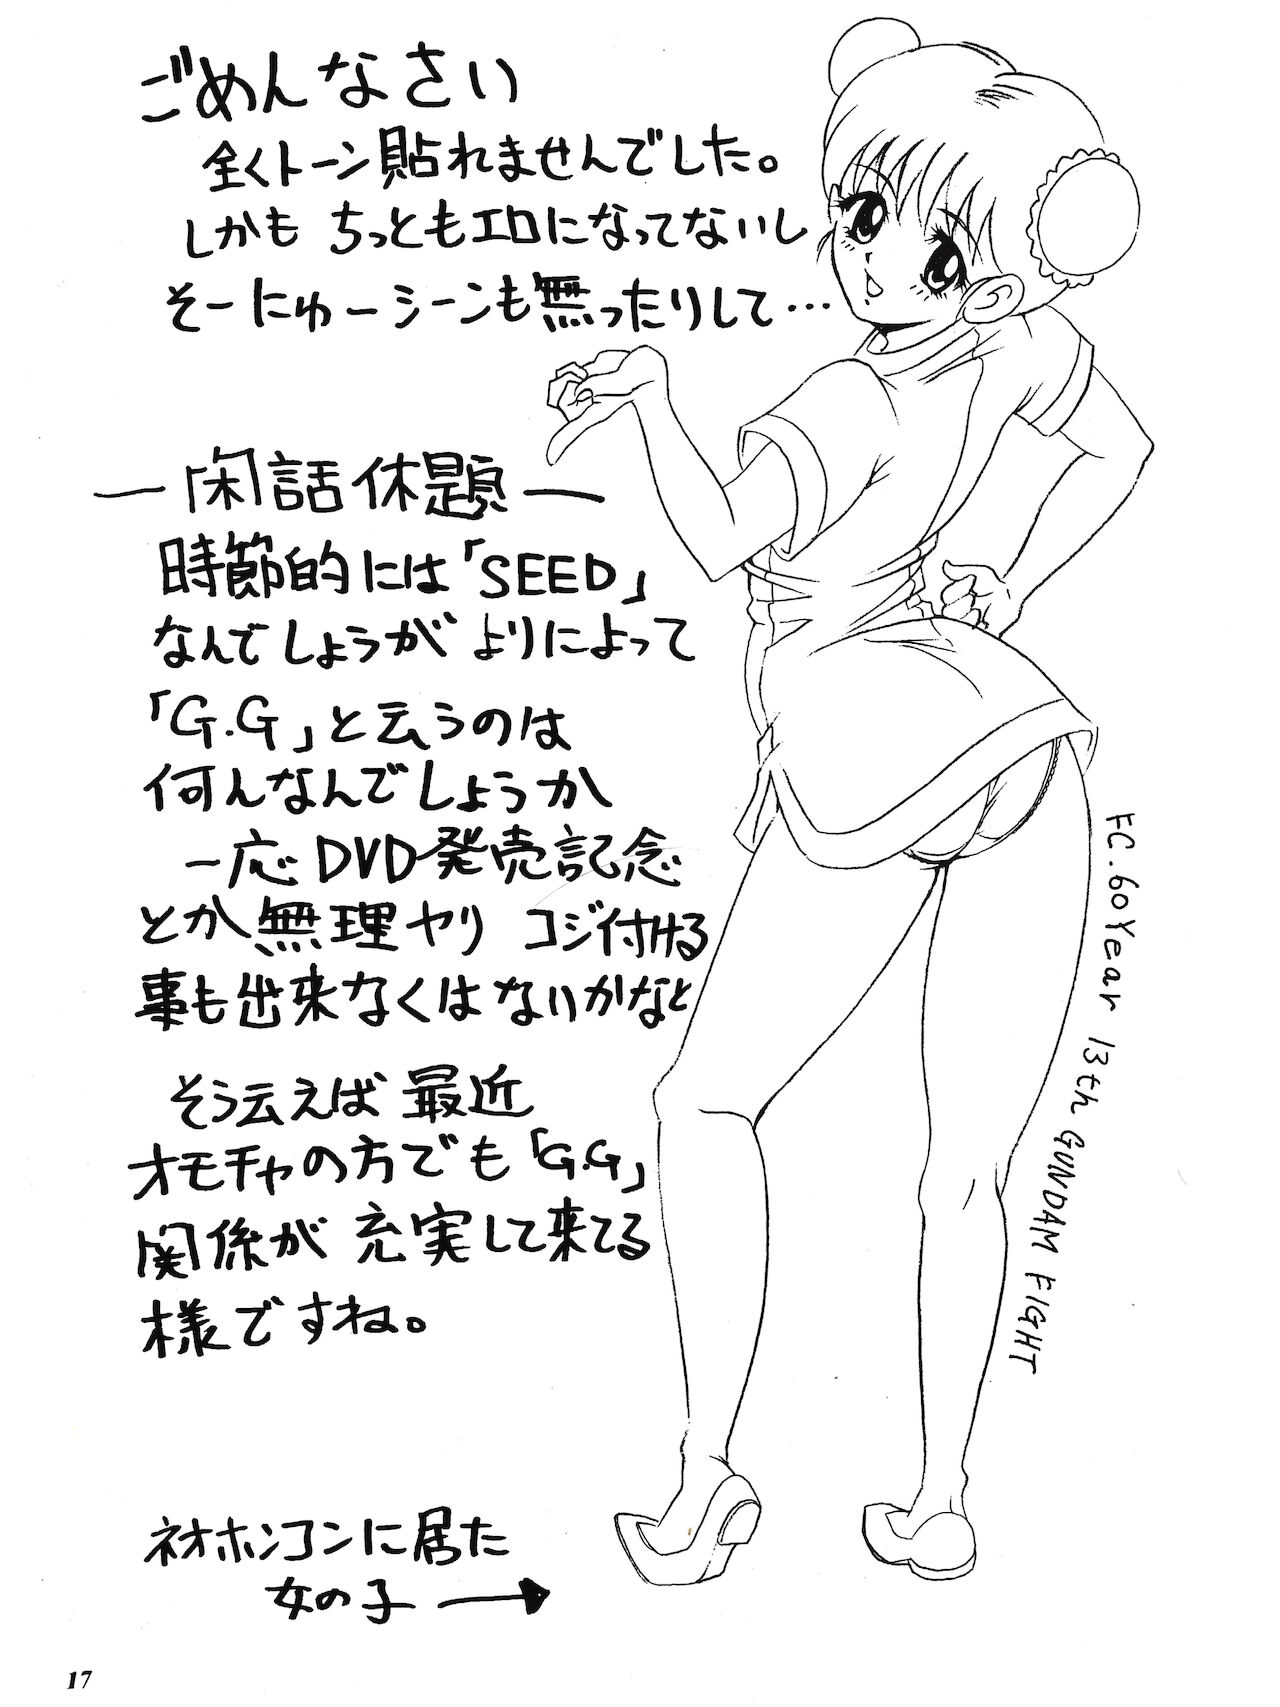 ごめんなさい
全くトーン貼れませんでした。
しかも ちっともエロになってないし
そーにゅーシーンも無ったりして…
―閑話休題―
時節的には「SEED」
なんでしょうが よりによって
「G.G」と云うのは
何んなんでしょうか
一応DVD発売記念
とか無理ヤリ コジ付ける
事も出来なくはないかなと
そう云えば 最近
オモチャの方でも「G.G」
関係が 充実して来てる
様ですね。
FC.60Year 13th GUNDAM FIGHT
ネオホンコンに居た
女の子 →
17